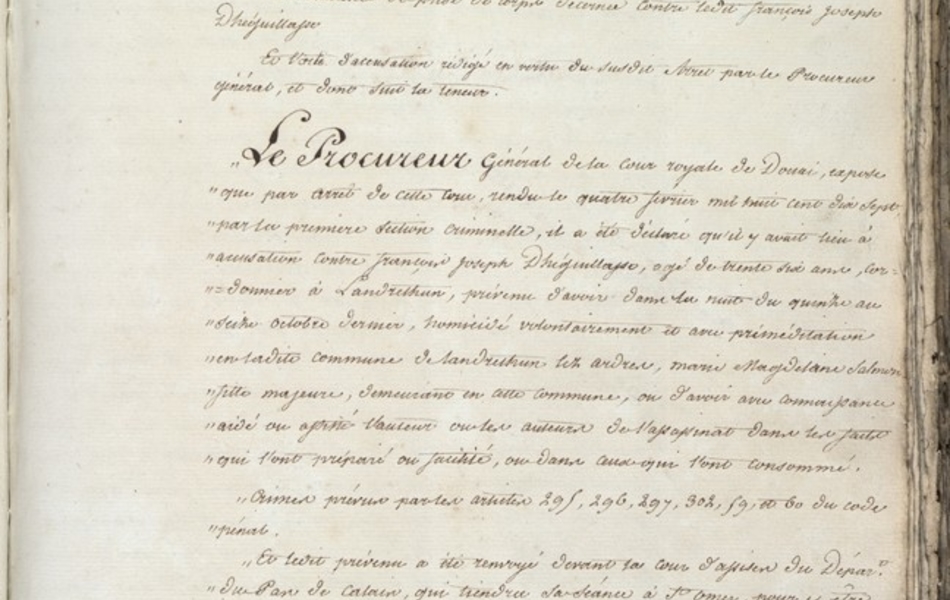 de prise de corps décernée contre ledit françois Joseph
Dhéguillage
Et l'acte d'accusation rédigé en vertu du susdit Arret par le Procureur
général, et dont suit la teneur.
„Le Procureur Général de la cour royale de Douai, expose
"que par arrêt de cette Cour, rendu le quatre février mil huit cent dix Sept,
"par la première Section Criminelle, il a été déclaré qu'il y avait lieu à
"accusation contre françois Joseph Dhéguillage, agé de trente six ans, cor=
"=donnier à Landrethun, prévenu d'avoir dans la nuit du quinze au
"Seize octobre dernier, homicidé volontairement et avec préméditation
"en ladite commune de landrethun lez ardres, marie Magdelaine Salomon
"fille majeure, demeurant en cette commune, ou d'avoir avec connaissance
"aidé ou assisté l'auteur ou les auteurs de l'assassinat dans les faits
"qui l'ont préparé ou facilité, ou dans ceux qui l'ont consommé.
„Crimes prévus par les articles 295, 296, 297, 302, 59, et 60 du code
"pénal.
„Et ledit prévenu a été renvoyé devant la cour d'assises du Dépar.t
"du Pas de Calais, qui tiendra sa Séance à St. Omer, pour y être